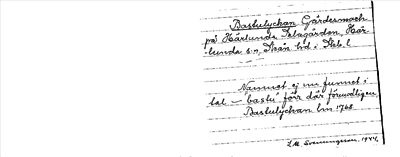 Bastulyckan Gärdesmark
på Härlunda Selagården, Här-
lunda s:n, Skån hd i Skb.l.
Namnet ej nu funnet i
tal — "bastu" förr där förmodligen
Bastulyckan lm 1768
S.M. Svenungsson, 1944.